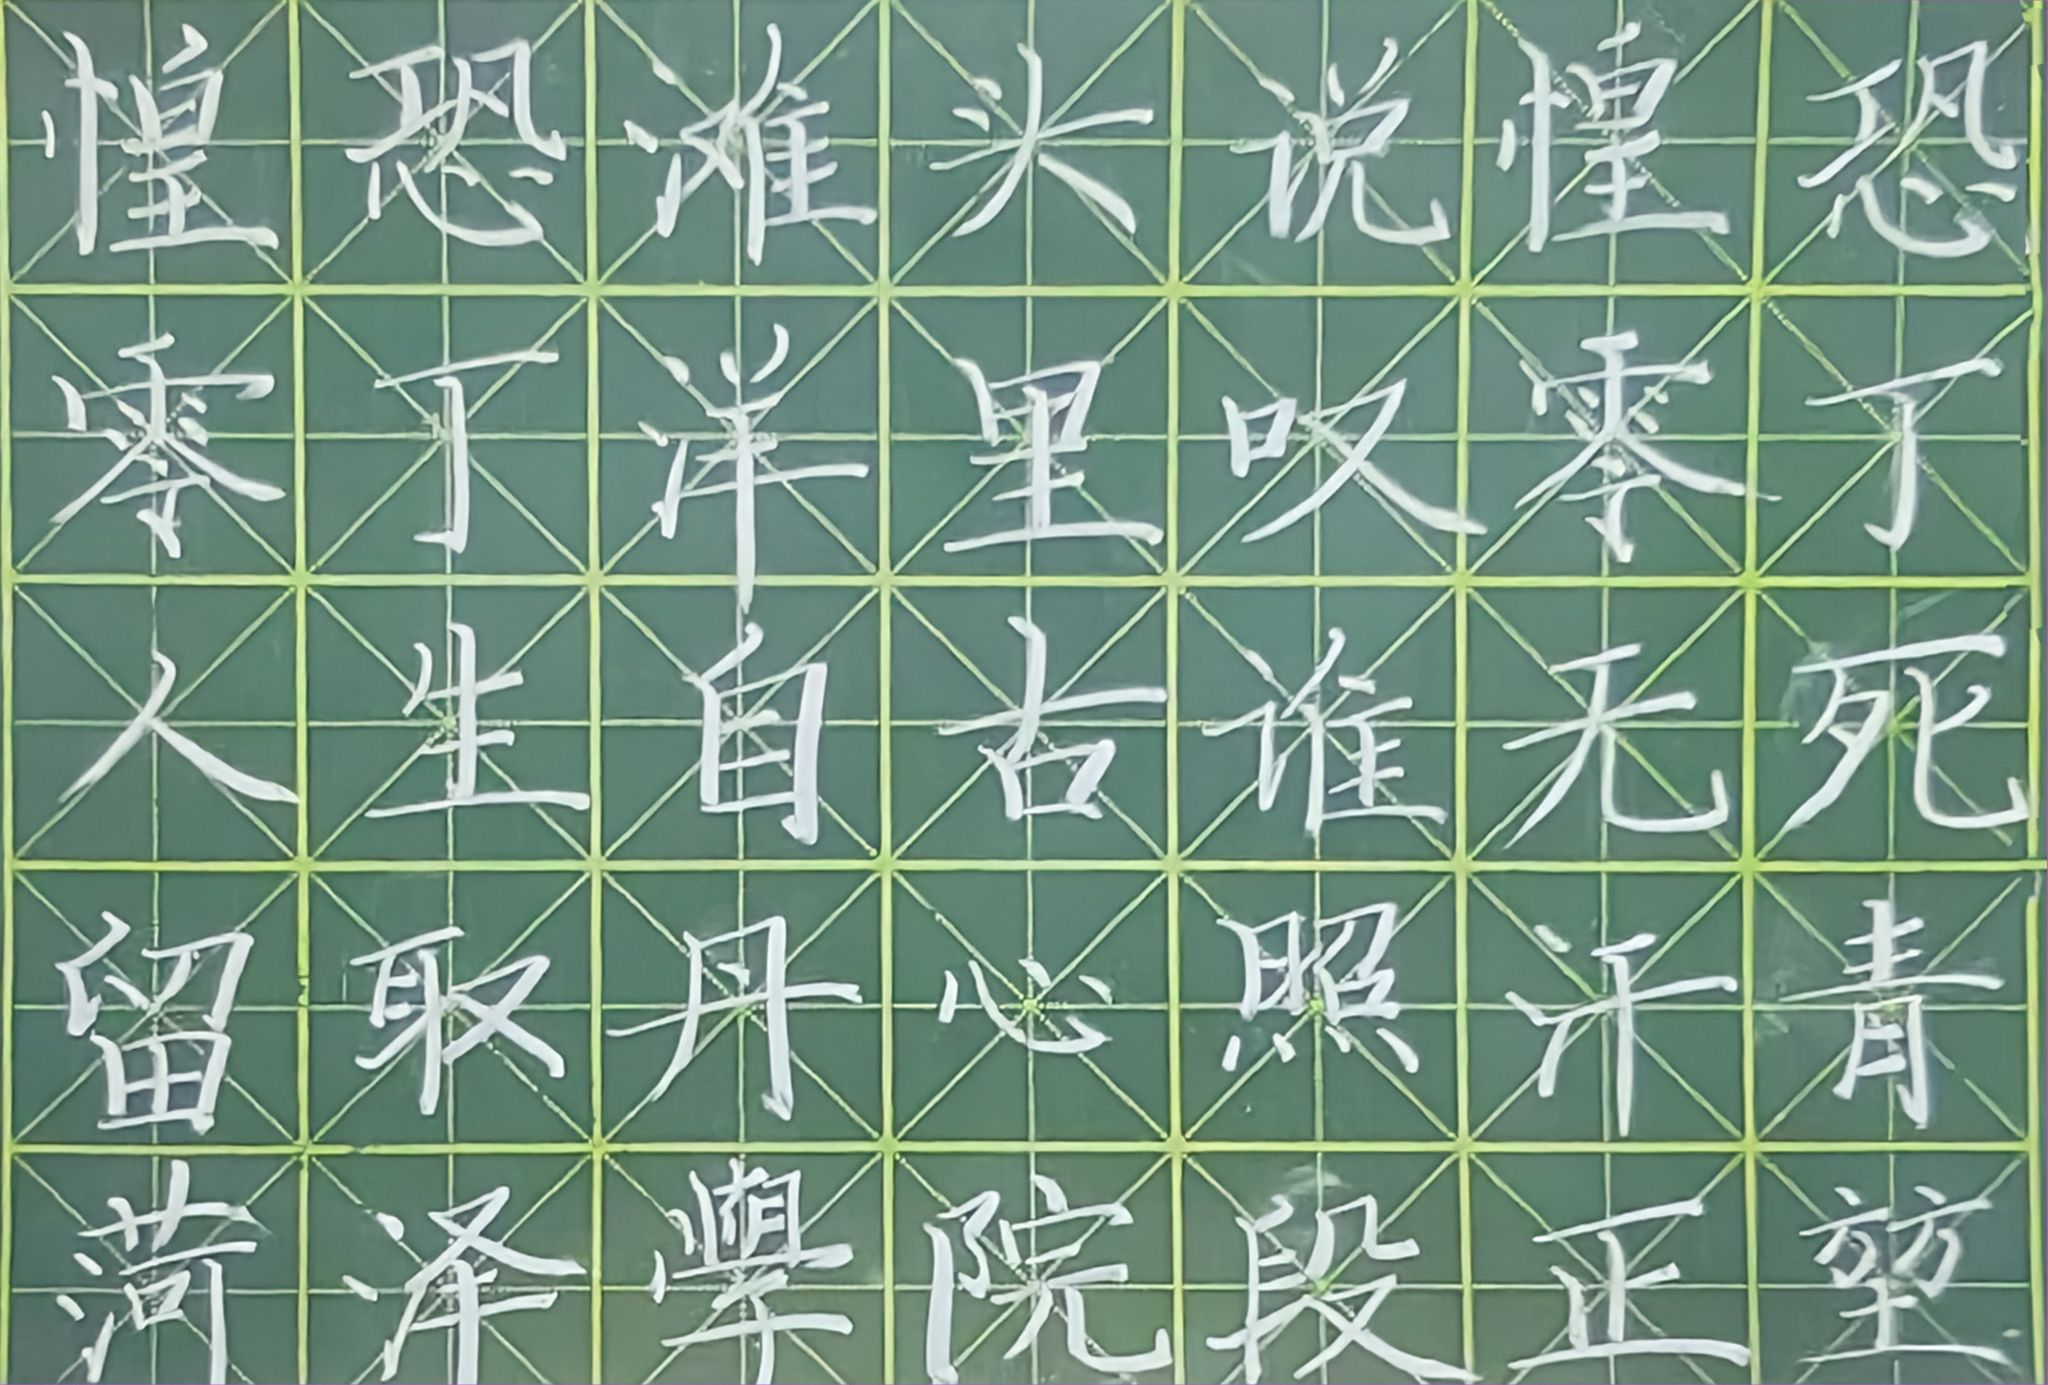 惶恐滩头说惶恐
零丁洋里叹零丁
人生自古谁无死
留取丹心照汗青
菏泽學院段正堃